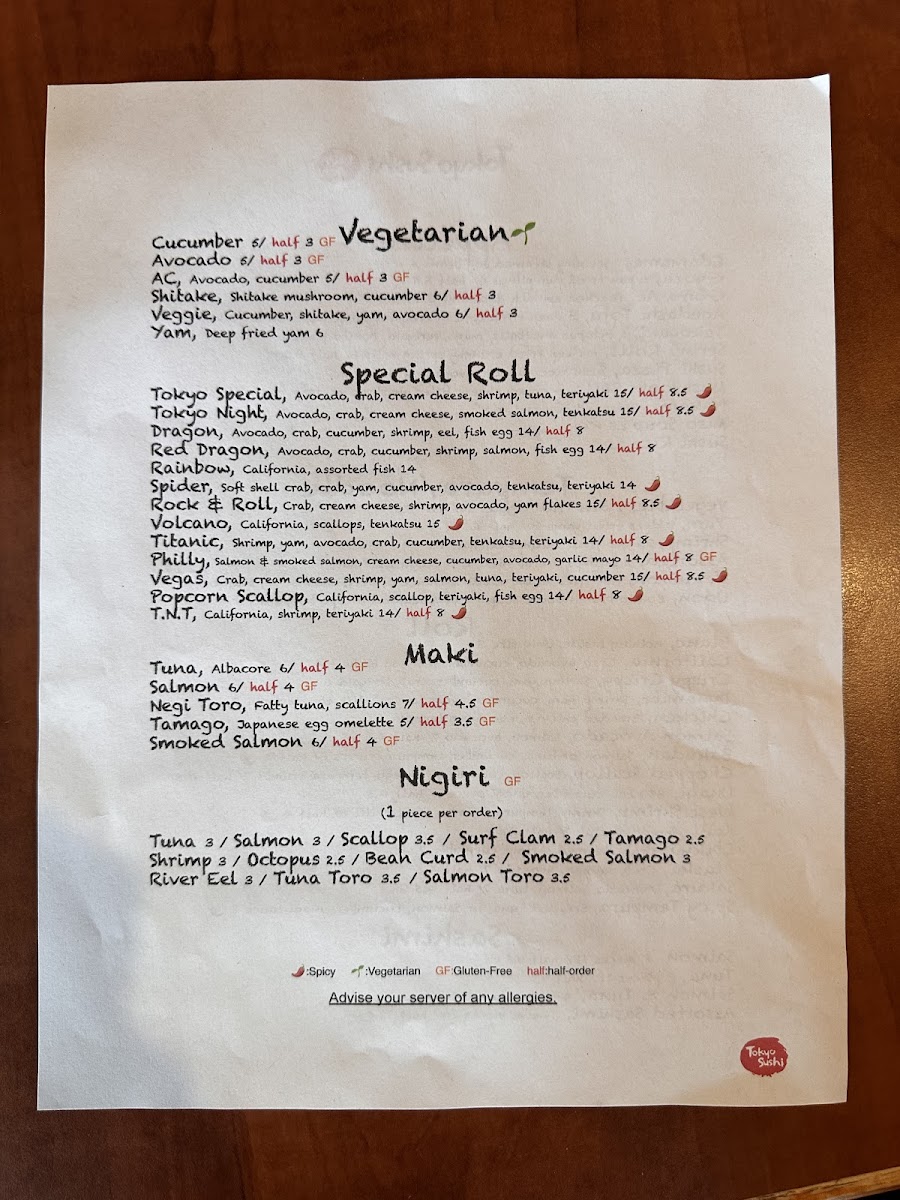 Vegetarian
Cucumber 5/ half 3 GF
Avocado 5/ half 3 GF
AC, Avocado, cucumber 5/ half 3 GF
Shitake, Shitake mushroom, cucumber 6/ half 3
Veggie, Cucumber, shitake, yam, avocado 6/ half 3
Yam, Deep fried yam 6
Special Roll
Tokyo Special, Avocado, crab, cream cheese, shrimp, tuna, teriyaki 15/ half 8.5
Tokyo Night, Avocado, crab, cream cheese, smoked salmon, tenkatsu 15/ half 8.5
Dragon, Avocado, crab, cucumber, shrimp, eel, fish egg 14/ half 8
Red Dragon, Avocado, crab, cucumber, shrimp, salmon, fish egg 14/ half 8
Rainbow, California, assorted fish 14
Spider, Soft shell crab, crab, yam, cucumber, avocado, tenkatsu, teriyaki 14
Rock & Roll, Crab, cream cheese, shrimp, avocado, yam flakes 15/ half 8.5
Volcano, California, scallops, tenkatsu 15
Titanic, Shrimp, yam, avocado, crab, cucumber, tenkatsu, teriyaki 14/ half 8
Philly, Salmon & smoked salmon, cream cheese, cucumber, avocado, garlic mayo 14/ half 8 GF
Vegas, Crab, cream cheese, shrimp, yam, salmon, tuna, teriyaki, cucumber 15/ half 8.5
Popcorn Scallop, California, scallop, teriyaki, fish egg 14/ half 8
T.N.T, California, shrimp, teriyaki 14/ half 8
Maki
Tuna, Albacore 6/ half 4 GF
Salmon 6/ half 4 GF
Negi Toro, Fatty tuna, scallions 7/ half 4.5 GF
Tamago, Japanese egg omelette 5/ half 3.5 GF
Smoked Salmon 6/ half 4 GF
Nigiri GF
(1 piece per order)
Tuna 3 / Salmon 3 / Scallop 3.5 / Surf Clam 2.5 / Tamago 2.5
Shrimp 3 / Octopus 2.5 / Bean Curd 2.5 / Smoked Salmon 3
River Eel 3 / Tuna Toro 3.5 / Salmon Toro 3.5
:Spicy :Vegetarian GF:Gluten-Free half:half-order
Advise your server of any allergies.
Tokyo
Sushi